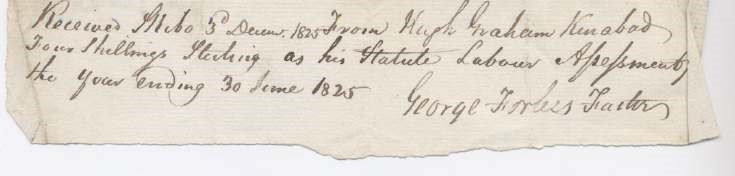 Received Skibo 3d Decem. 1825 From Hugh Graham Kinabad
Four Shillings Sterling as his Statute Labour Assessment
the year ending 30 June 1825
George Forbes Factor